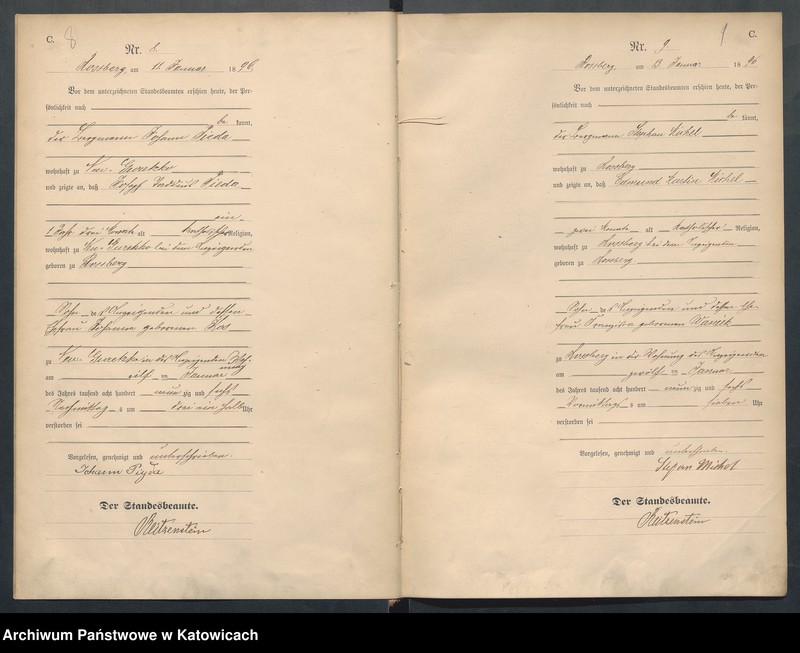 C. 8
Nr. 8.
Rossberg am 11 Januar 1896
Vor dem unterzeichneten Standesbeamten erschien heute, der Per-
sönlichkeit nach
be kannt,
der Bergmann Johann
wohnhaft zu Neu-Guretzko
und zeigte an, daß Joseph
ein
1 Jahr drei Monate alt katholischer Religion,
wohnhaft zu Neu-Guretzko bei dem Anzeigenden
geboren zu Rossberg
Sohn de s Anzeigenden und dessen
Ehefrau Johanna geborenen
zu Neu-Guretzko in des Anzeigenden Woh-
nung
am elf ten Januar
des Jahres tausend acht hundert neun zig und sechs
Nachmittag s um drei ein halb Uhr
verstorben sei
Vorgelesen, genehmigt und unterschrieben.
Johann
Der Standesbeamte.
Reitzenstein
9 C.
Nr. 9
Rossberg am 13 Januar 1896
Vor dem unterzeichneten Standesbeamten erschien heute, der Per-
sönlichkeit nach
be kannt,
der Bergmann Stephan Michol
wohnhaft zu Rossberg
und zeigte an, daß Edmund Martin Michol
zwei Monate alt katholischer Religion,
wohnhaft zu Rossberg bei dem Anzeigenden
geboren zu Rossberg
Sohn de s Anzeigenden und dessen Ehe-
frau Franziska geborenen
zu Rossberg in der Wohnung des Anzeigenden
am zwölf ten Januar
des Jahres tausend acht hundert neun zig und sechs
Vormittags s um sieben Uhr
verstorben sei
Vorgelesen, genehmigt und unterschrieben.
Stefan Michol
Der Standesbeamte.
Reitzenstein
Archiwum Państwowe w Katowicach